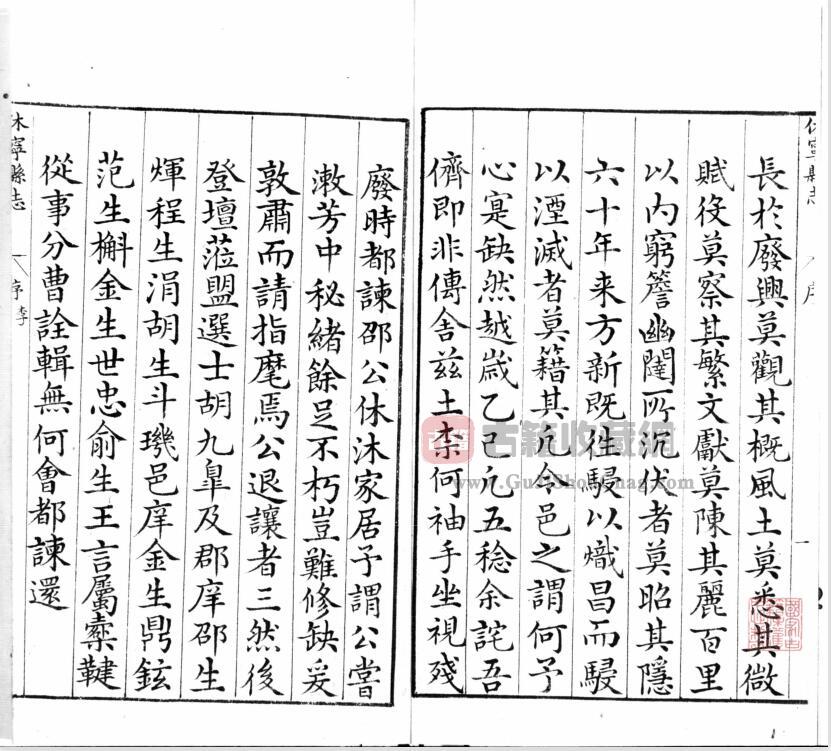 休寧縣志
序
一
長於廢興莫觀其概風土莫悉其微
賦役莫察其繁文獻莫陳其麗百里
以內窮簷幽闥所沉伏者莫昭其隱
六十年来方新既往駸以熾昌而駸
以湮滅者莫籍其凡令邑之謂何予
心寔缺然越歲乙巳凡五稔余詫吾
儕即非傳舍兹土柰何袖手坐視殘
廢時都諫邵公休沐家居予謂公嘗
漱芳中秘緒餘足不朽豈難修缺爰
敦肅而請指麾焉公退讓者三然後
登壇蒞盟選士胡九臯及郡庠邵生
煇程生涓胡生斗璣邑庠金生鼎鉉
范生槲金生世忠俞生王言屬橐鞬
從事分曹詮輯無何會都諫還
休寧縣志
序李
古籍收藏網